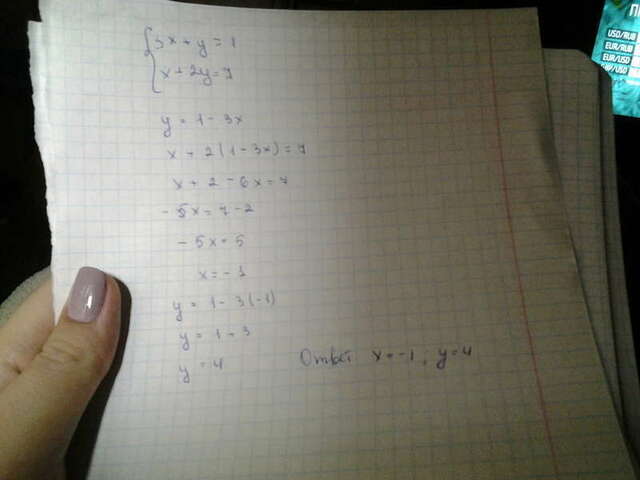 3x + y = 1
x + 2y = 7
y = 1 - 3x
x + 2(1 - 3x) = 7
x + 2 - 6x = 7
- 5x = 7 - 2
- 5x = 5
x = - 1
y = 1 - 3(-1)
y = 1 + 3
y = 4
Ответ x = -1, y = 4
USD/RUB
EUR/RUB
EUR/USD